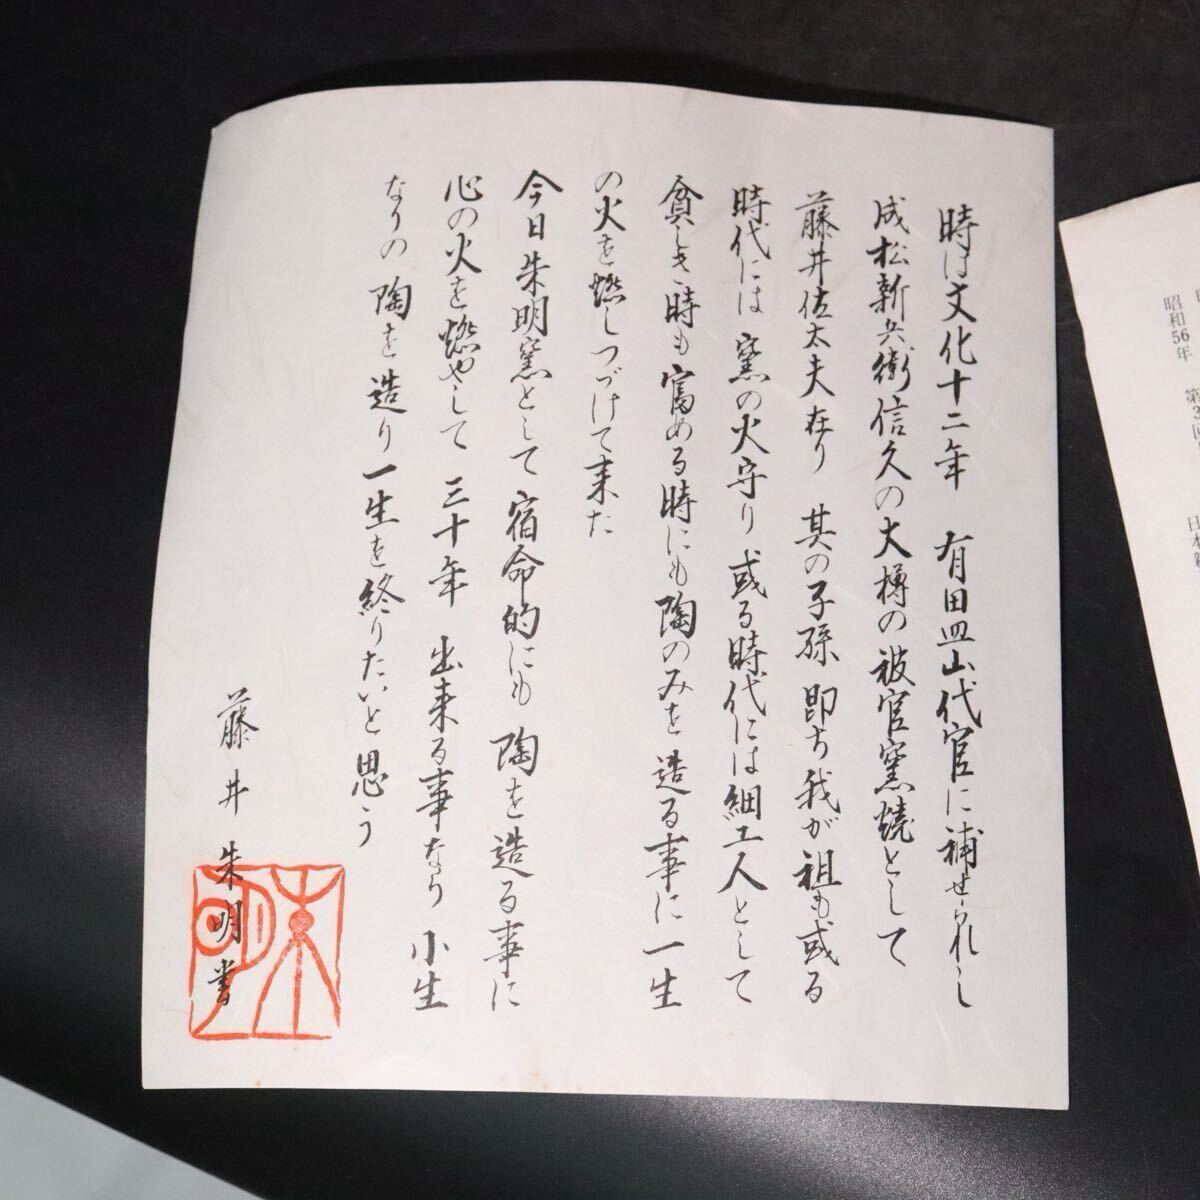 時は文化十二年 有田皿山代官に補せられし
成松新兵衛信久の大樽の被官窯焼として
藤井佐太夫在り 其の子孫 即ち我が祖も或る
時代には 窯の火守り 或る時代には細工人として
貧しき時も富める時にも陶のみを造る事に一生
の火を燃しつづけて来た
今日朱明窯として宿命的にも 陶を造る事に
心の火を燃やして 三十年 出来る事なり 小生
なりの 陶を造り一生を終りたいと思う
藤井朱明書
朱明
昭和56年